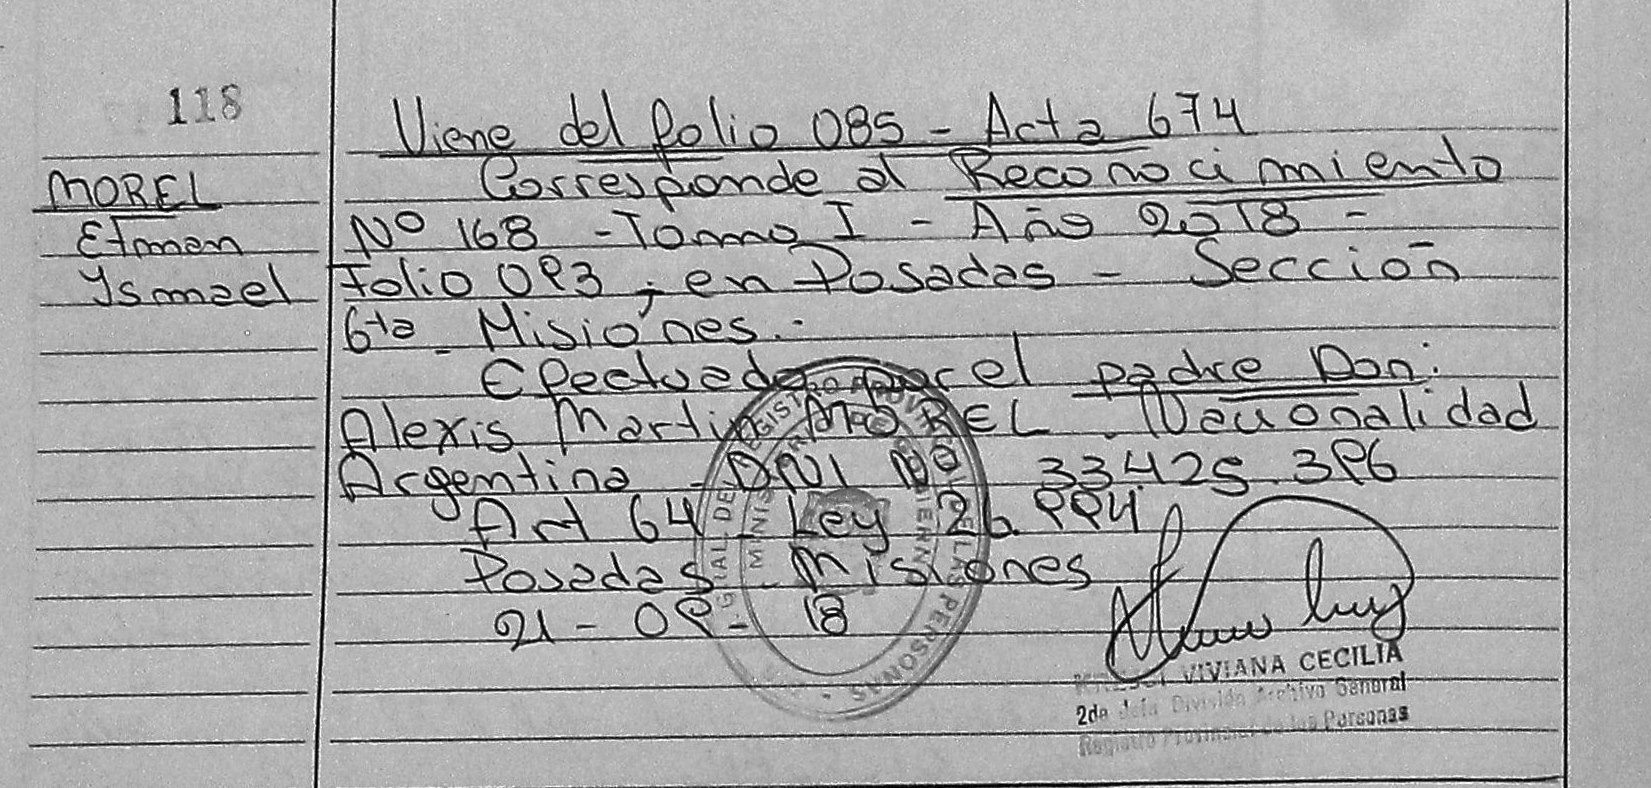 118
MOREL
Etman
Ysmael
Viene del folio 085 - Acta 674
Corresponde al Reconocimiento
Nº 168 - Tomo I - Año 2018 -
Folio 093, en Posadas - Sección
6ta Misiones.-
Efectuado por el padre Don:
Alexis Martin MOREL. Nacionalidad
Argentina - DNI Nº 33.425.396
Art 64 Ley 26.994
Posadas Misiones
21 - 09 - 18
VIVIANA CECILIA
2da Jefa División Archivo General
Registro Provincial de las Personas
REGISTRO PROVINCIAL DE LAS PERSONAS